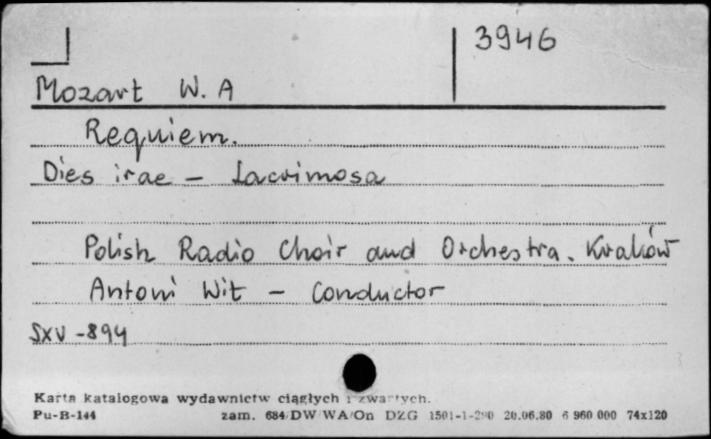 3946
Mozart W. A
Requiem.
Dies irae - Lacrimosa
Polish Radio Choir and Orchestra. Kraków
Antoni Wit - Conductor
SXV -894
Karta katalogowa wydawnictw ciągłych i zwartych.
Pu-B-144 zam. 684/DW/WA/On DZG 1501-1-290 20.06.80 6 960 000 74x120